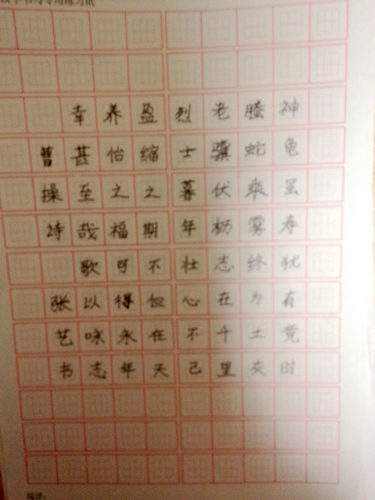 神龟虽寿犹有竟时
腾蛇乘雾终为土灰
老骥伏枥志在千里
烈士暮年壮心不已
盈缩之期不但在天
养怡之福可得永年
幸甚至哉歌以咏志
曹操诗 张艺书